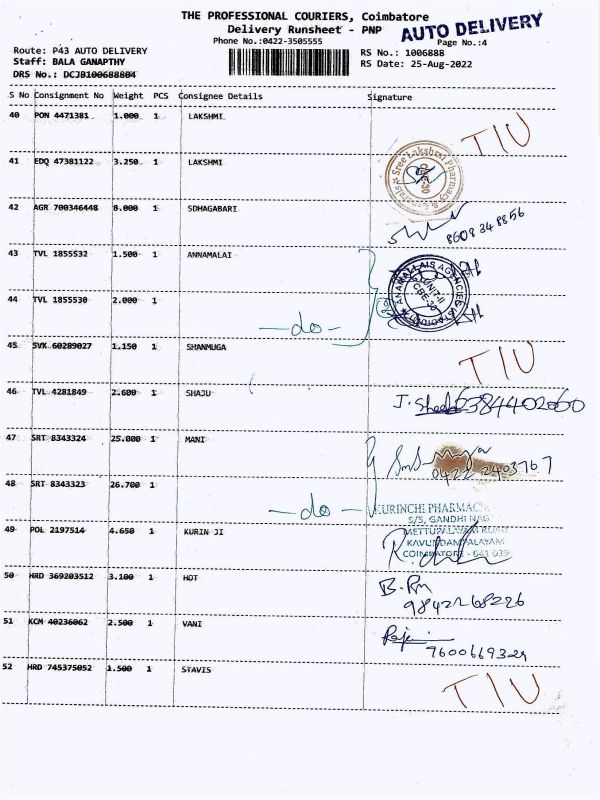 THE PROFESSIONAL COURIERS, Coimbatore
Delivery Runsheet - PNP
AUTO DELIVERY
Phone No.:0422-3505555
Page No.:4
Route: P43 AUTO DELIVERY
RS No.: 1006888
Staff: BALA GANAPTHY
RS Date: 25-Aug-2022
DRS No.: DCJB100688804
S No Consignment No Weight PCS Consignee Details Signature
40 PON 4471381 1.000 1 LAKSHMI
T/U
41 EDQ 47381122 3.250 1 LAKSHMI
Sree Lakshmi Pharmacy
42 AGR 700346448 8.000 1 SDHAGABARI
8608348856
43 TVL 1855532 1.500 1 ANNAMALAI
ANAMALLAIS AGENCIES
UNIT-II
CBE-30
44 TVL 1855530 2.000 1
-do-
45 SVK 60289027 1.150 1 SHANMUGA
T/U
46 TVL 4281849 2.600 1 SHAJU
47 SRT 8343324 25.000 1 MANI
0422 2403767
48 SRT 8343323 26.700 1
-do-
KURINCHI PHARMAC
5/5, GANDHI NAG
METTUPALAYAM ROAD
49 POL 2197514 4.650 1 KURIN JI
KAVUNDAMPALAYAM
COIMBATORE - 641 030
50 HRD 369203512 3.100 1 HOT
B. Rm
9842268226
51 KCM 40236062 2.500 1 VANI
7600669329
52 HRD 745375052 1.500 1 STAVIS
T/U